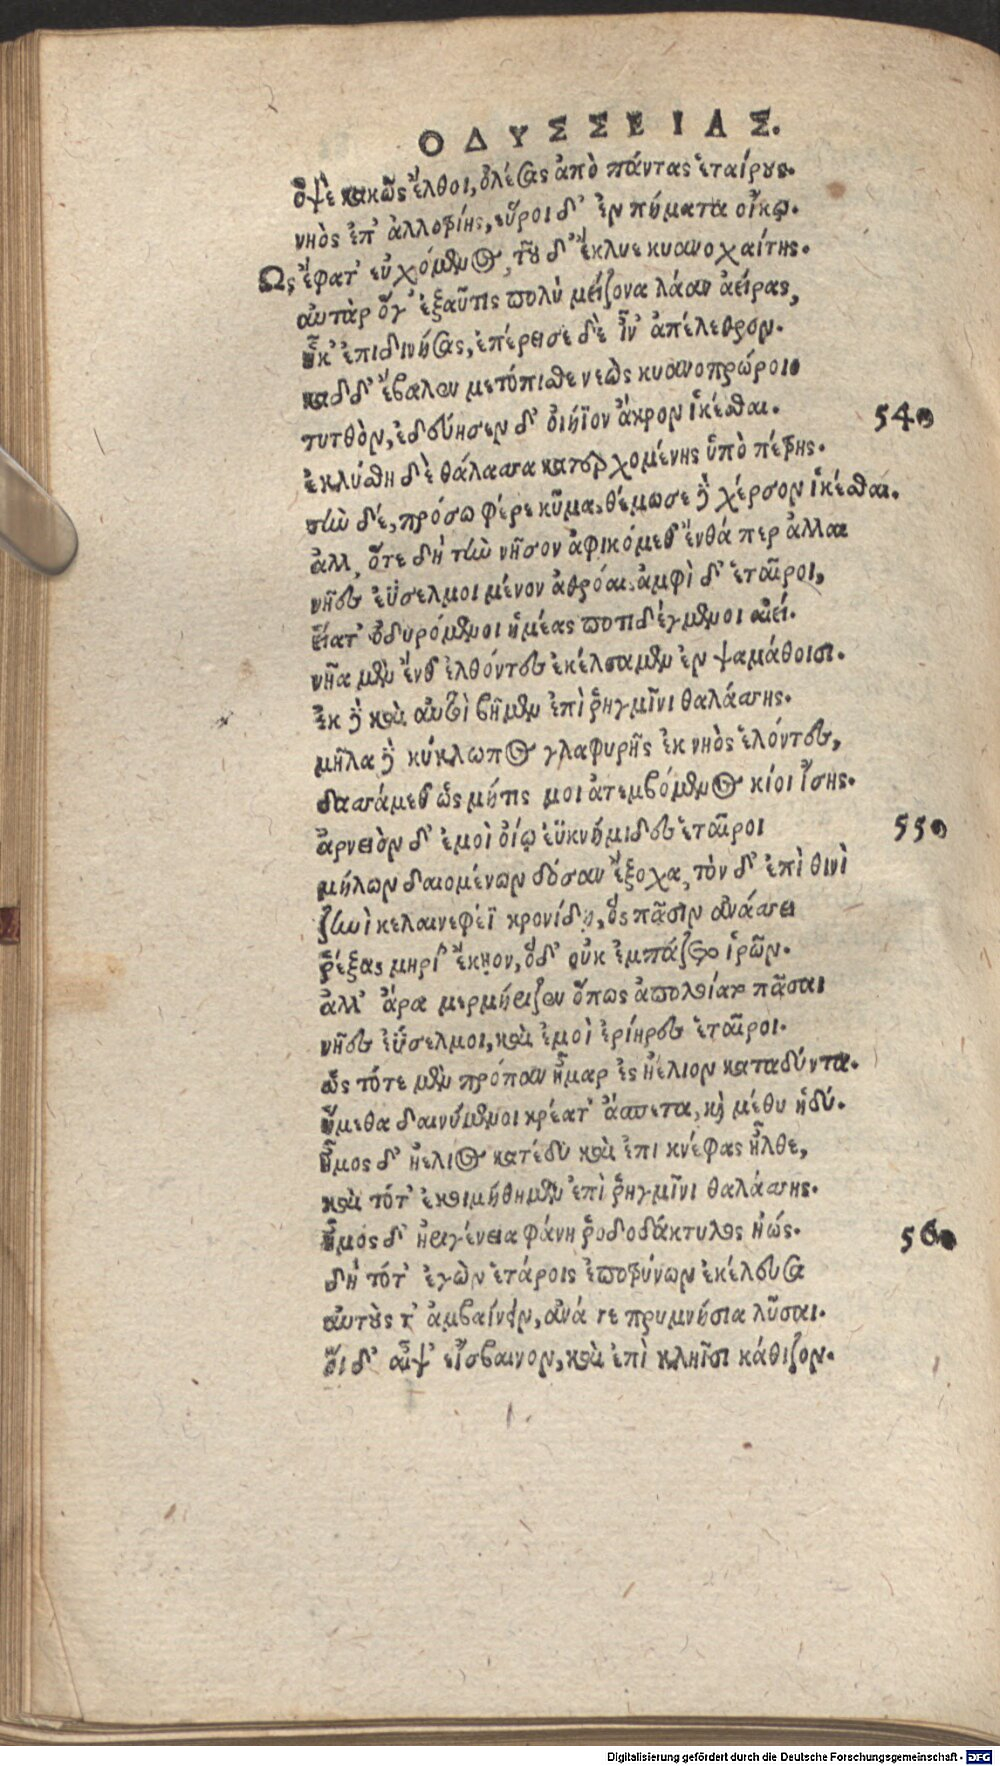 ΟΔΥΣΣΕΙΑΣ.
ὀψὲ κακῶς ἔλθοι, ὀλέσας ἀπὸ πάντας ἑταίρους.
νηὸς ἐπ' ἀλλοτρίης, εὕροι δ' ἐν πήματα οἴκῳ.
Ὣς ἔφατ' εὐχόμενος, τοῦ δ' ἔκλυε κυανοχαίτης.
αὐτὰρ ὅγ' ἐξαῦτις πολὺ μείζονα λᾶαν ἀείρας,
ἧκ' ἐπιδινήσας, ἐπέρεισε δὲ ἶν' ἀπέλεθρον.
καδδ' ἔβαλεν μετόπισθε νεὼς κυανοπρώροιο
τυτθὸν, ἐδεύησεν δ' οἰήϊον ἄκρον ἱκέσθαι. 540
ἐκλύσθη δὲ θάλασσα κατερχομένης ὑπὸ πέτρης.
τὴν δὲ, πρόσω φέρε κῦμα, θέμωσε δὲ χέρσον ἱκέσθαι.
ἀλλ' ὅτε δὴ τὴν νῆσον ἀφικόμεθ' ἔνθά περ ἄλλαι
νῆες ἐΰσελμοι μένον ἀθρόαι, ἀμφὶ δ' ἑταῖροι,
εἵατ' ὀδυρόμενοι ἡμέας ποτιδέγμενοι αἰεί.
νῆα μὲν ἔνθ' ἐλθόντες ἐκέλσαμεν ἐν ψαμάθοισι.
ἐκ δὲ καὶ αὐτοὶ βῆμεν ἐπὶ ῥηγμῖνι θαλάσσης.
μῆλα δὲ κύκλωπος γλαφυρῆς ἐκ νηὸς ἑλόντες,
δασσάμεθ' ὡς μήτις μοι ἀτεμβόμενος κίοι ἴσης.
ἀρνειὸν δ' ἐμοὶ οἴῳ ἐϋκνήμιδες ἑταῖροι 550
μήλων δαιομένων δόσαν ἔξοχα, τὸν δ' ἐπὶ θινὶ
ζηνὶ κελαινεφέϊ κρονίδῃ, ὃς πᾶσιν ἀνάσσει
ῥέξας μηρί' ἔκηον, ὅδ' οὐκ ἐμπάζετο ἱρῶν.
ἀλλ' ἄρα μερμήριζεν ὅπως ἀπολοίατο πᾶσαι
νῆες ἐΰσελμοι, καὶ ἐμοὶ ἐρίηρες ἑταῖροι.
ὣς τότε μὲν πρόπαν ἦμαρ ἐς ἠέλιον καταδύντα.
ἥμεθα δαινύμενοι κρέατ' ἄσπετα, καὶ μέθυ ἡδύ.
ἦμος δ' ἠέλιος κατέδυ καὶ ἐπὶ κνέφας ἦλθε,
καὶ τότ' ἐκοιμήθημεν ἐπὶ ῥηγμῖνι θαλάσσης.
ἦμος δ' ἠριγένεια φάνη ῥοδοδάκτυλος ἠώς. 560
δὴ τότ' ἐγὼν ἑτάροις ἐποτρύνων ἐκέλευσα
αὐτούς τ' ἀμβαίνειν, ἀνά τε πρυμνήσια λῦσαι.
οἱ δ' αἶψ' εἴσβαινον, καὶ ἐπὶ κληῖσι κάθιζον.
Digitalisierung gefördert durch die Deutsche Forschungsgemeinschaft - DFG